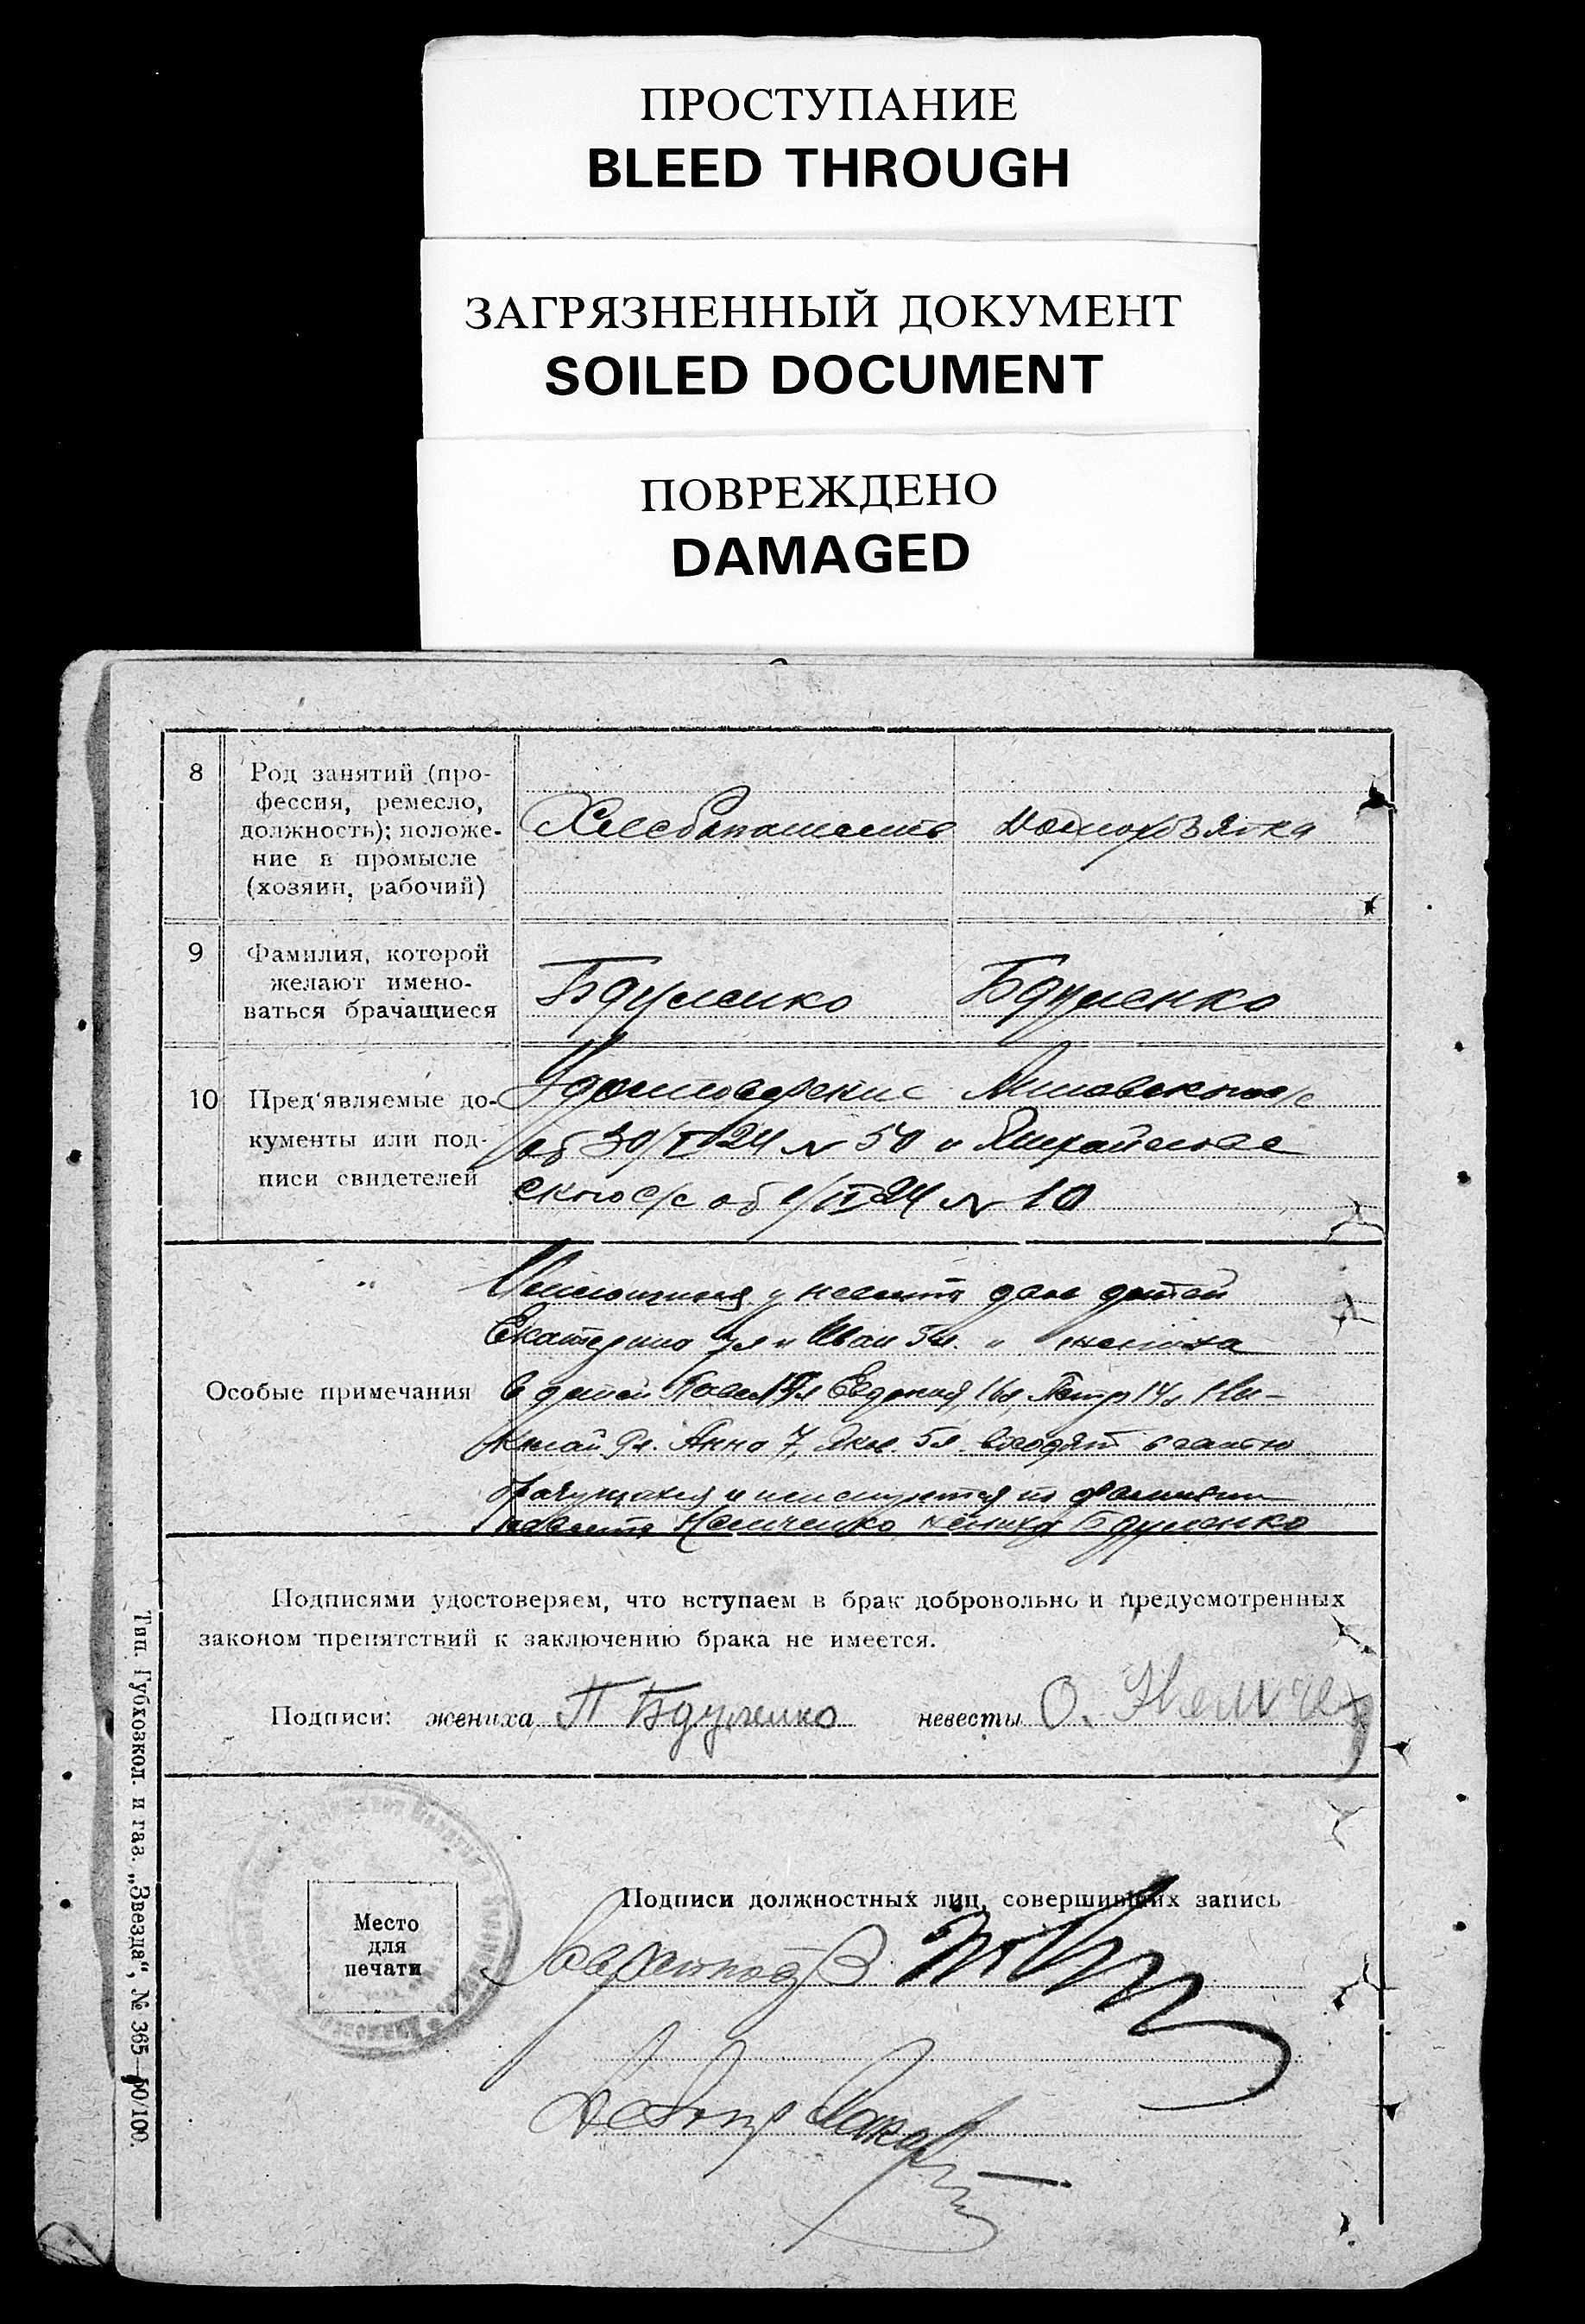 ПРОСТУПАНИЕ
BLEED THROUGH
ЗАГРЯЗНЕННЫЙ ДОКУМЕНТ
SOILED DOCUMENT
ПОВРЕЖДЕНО
DAMAGED
8 Род занятий (про-
фессия, ремесло,
должность); положе-
ние в промысле
(хозяин, рабочий)
Хлебопашество
Домохозяйка
9 Фамилия, которой
желают имено-
ваться брачащиеся
Бдуленко
Бдуленко
10 Пред'являемые до-
кументы или под-
писи свидетелей
Удостоверение
об 30/24 № 50 и
с/с об 24 № 10
Особые примечания
Имеющиеся у невесты двое детей
Екатерина 7 л и Иван 5 л. " жениха
6 детей Павел Евдокия 16 л, Петр 14 л Ни-
колай 9 л. Анна 7, Яков 5 л входят в семью
брачущихся и именуются по фамилии
невесты Немченко жениха Бдуленко
Подписями удостоверяем, что вступаем в брак добровольно и предусмотренных
законом препятствий к заключению брака не имеется.
Подписи: жениха П Бдуленко невесты О. Немче
Место
для
печати
Подписи должностных лиц, совершивших запись
Делопр
Тип. Губхозкол. и газ. „Звезда“, № 365—50/100.